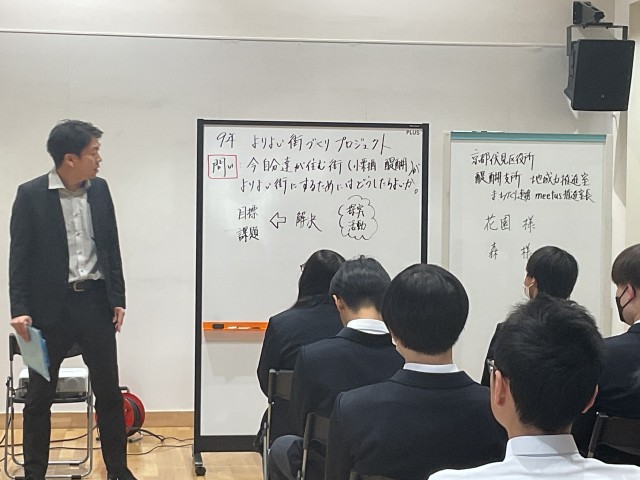 PLUS
9年 よりよい街づくりプロジェクト
問い:今自分達が住む街(小栗栖 醍醐)が
よりよい街にするためにはどうしたらよいか。
目標
課題
⇦ 解決
探究
活動
京都伏見区役所
醍醐支所 地域力推進室
meetus推進室長
花園 様
森 様